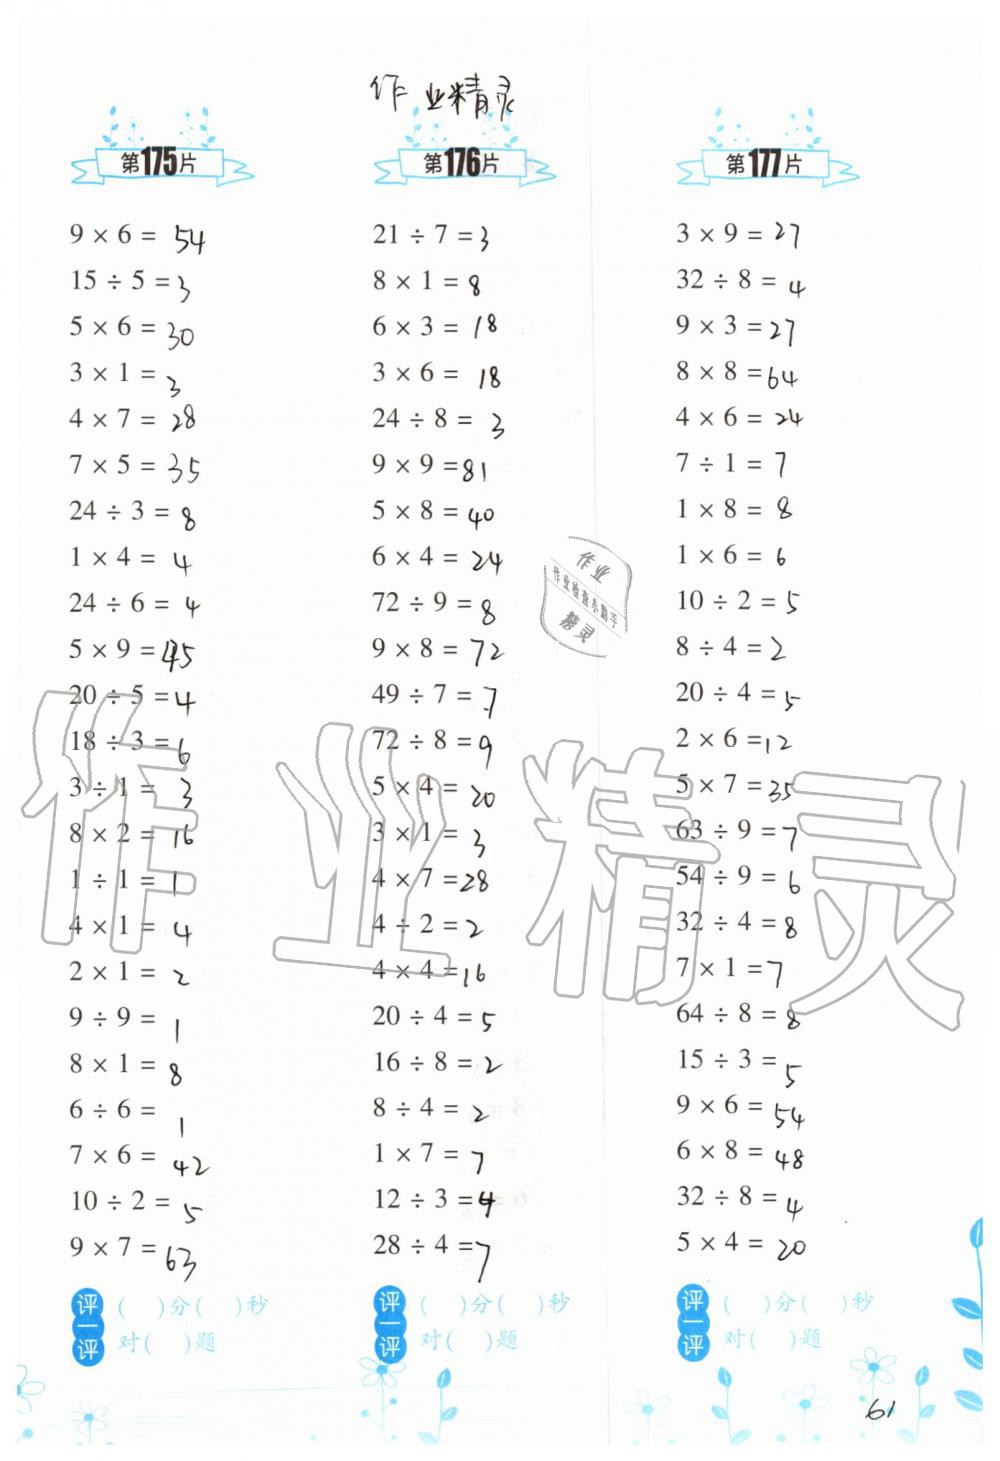 作业精灵
第175片
9 × 6 = 54
15 ÷ 5 = 3
5 × 6 = 30
3 × 1 = 3
4 × 7 = 28
7 × 5 = 35
24 ÷ 3 = 8
1 × 4 = 4
24 ÷ 6 = 4
5 × 9 = 45
20 ÷ 5 = 4
18 ÷ 3 = 6
3 ÷ 1 = 3
8 × 2 = 16
1 ÷ 1 = 1
4 × 1 = 4
2 × 1 = 2
9 ÷ 9 = 1
8 × 1 = 8
6 ÷ 6 = 1
7 × 6 = 42
10 ÷ 2 = 5
9 × 7 = 63
评一评
( )分( )秒
对( )题
第176片
21 ÷ 7 = 3
8 × 1 = 8
6 × 3 = 18
3 × 6 = 18
24 ÷ 8 = 3
9 × 9 = 81
5 × 8 = 40
6 × 4 = 24
72 ÷ 9 = 8
9 × 8 = 72
49 ÷ 7 = 7
72 ÷ 8 = 9
5 × 4 = 20
3 × 1 = 3
4 × 7 = 28
4 ÷ 2 = 2
4 × 4 = 16
20 ÷ 4 = 5
16 ÷ 8 = 2
8 ÷ 4 = 2
1 × 7 = 7
12 ÷ 3 = 4
28 ÷ 4 = 7
评一评
( )分( )秒
对( )题
第177片
3 × 9 = 27
32 ÷ 8 = 4
9 × 3 = 27
8 × 8 = 64
4 × 6 = 24
7 ÷ 1 = 7
1 × 8 = 8
1 × 6 = 6
10 ÷ 2 = 5
8 ÷ 4 = 2
20 ÷ 4 = 5
2 × 6 = 12
5 × 7 = 35
63 ÷ 9 = 7
54 ÷ 9 = 6
32 ÷ 4 = 8
7 × 1 = 7
64 ÷ 8 = 8
15 ÷ 3 = 5
9 × 6 = 54
6 × 8 = 48
32 ÷ 8 = 4
5 × 4 = 20
评一评
( )分( )秒
对( )题
作业
作业检查小助手
精灵
作业精灵
61